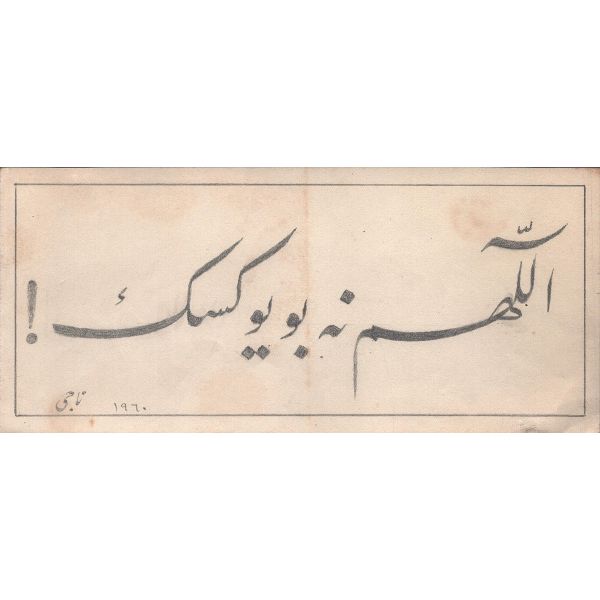 اللّٰهم نه بويوكسك !
ناجی ١٩٦٠